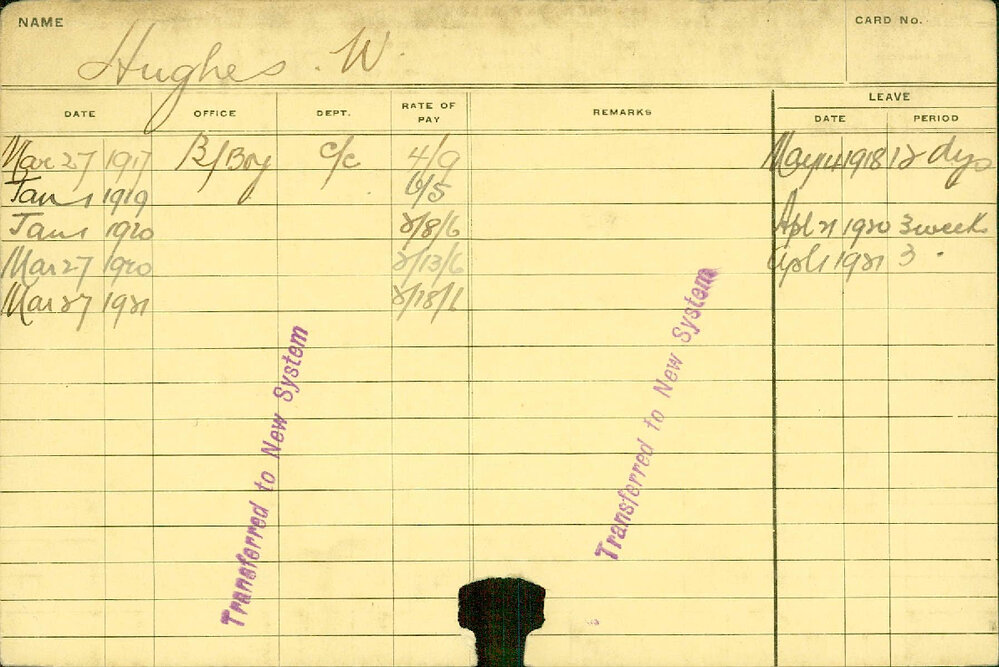 NAME
CARD No.
Hughes. W.
DATE OFFICE DEPT. RATE OF PAY REMARKS LEAVE
DATE PERIOD
Mar 27 1917 B/Boy c/c 4/9 May 14 1918 12 dys
Jan 1 1919 6/5
Jan 1 1920 2/8/6 Apl 21 1920 3 weeks
Mar 27 1920 2/13/6 Apl 1 1921 3 "
Mar 27 1921 2/18/
Transferred to New System
Transferred to New System